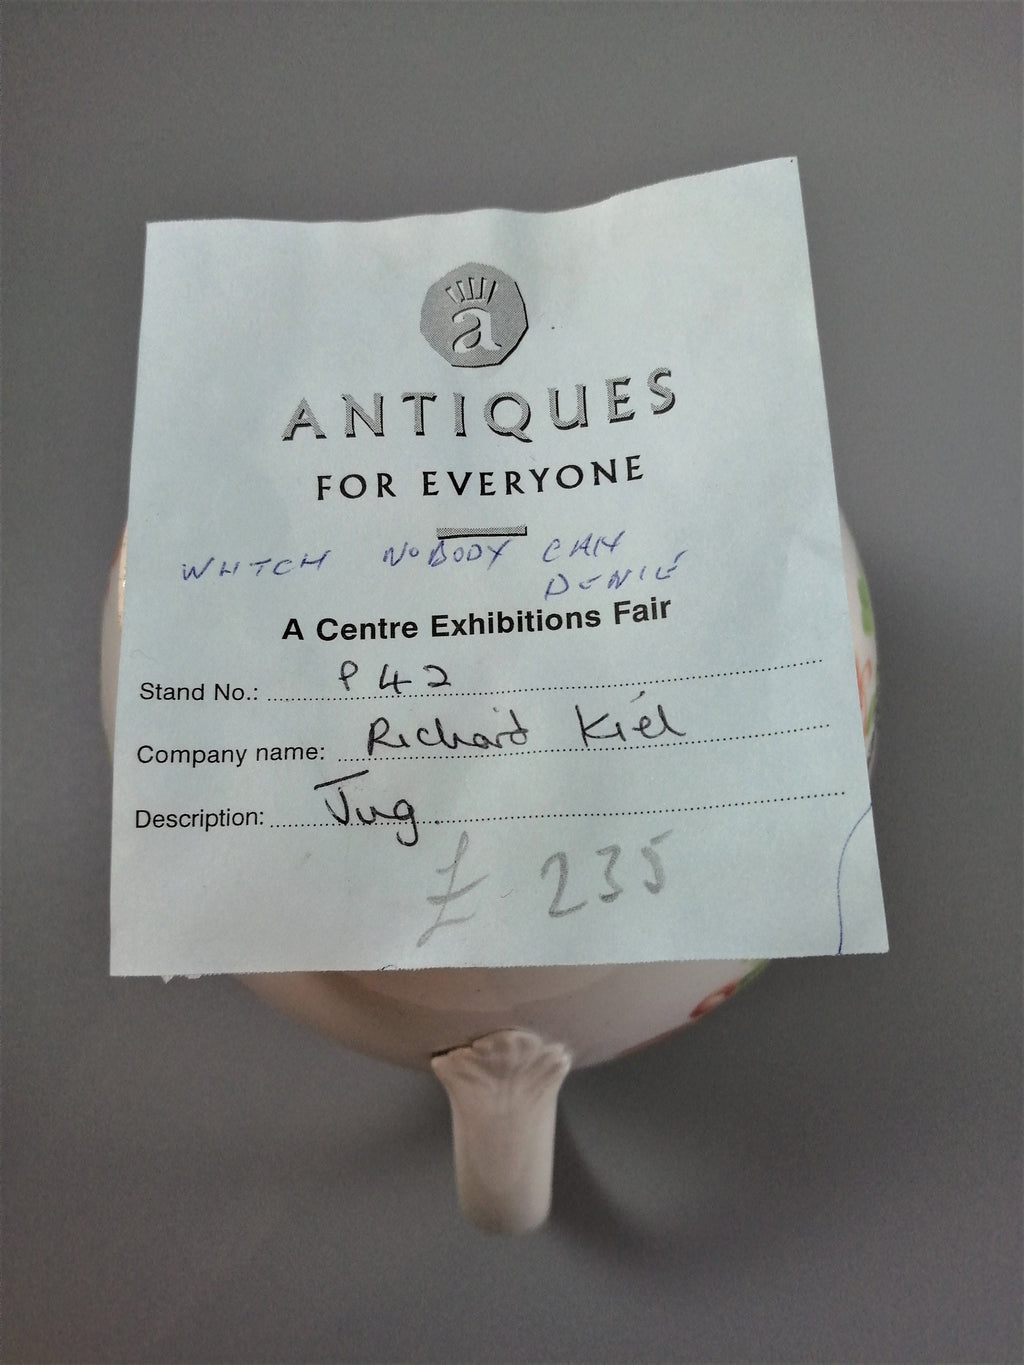 a
ANTIQUES
FOR EVERYONE
WHTCH NOBODY CAN
DENIE
A Centre Exhibitions Fair
Stand No.: P 42
Company name: Richard Kiel
Description: Jug.
£ 235